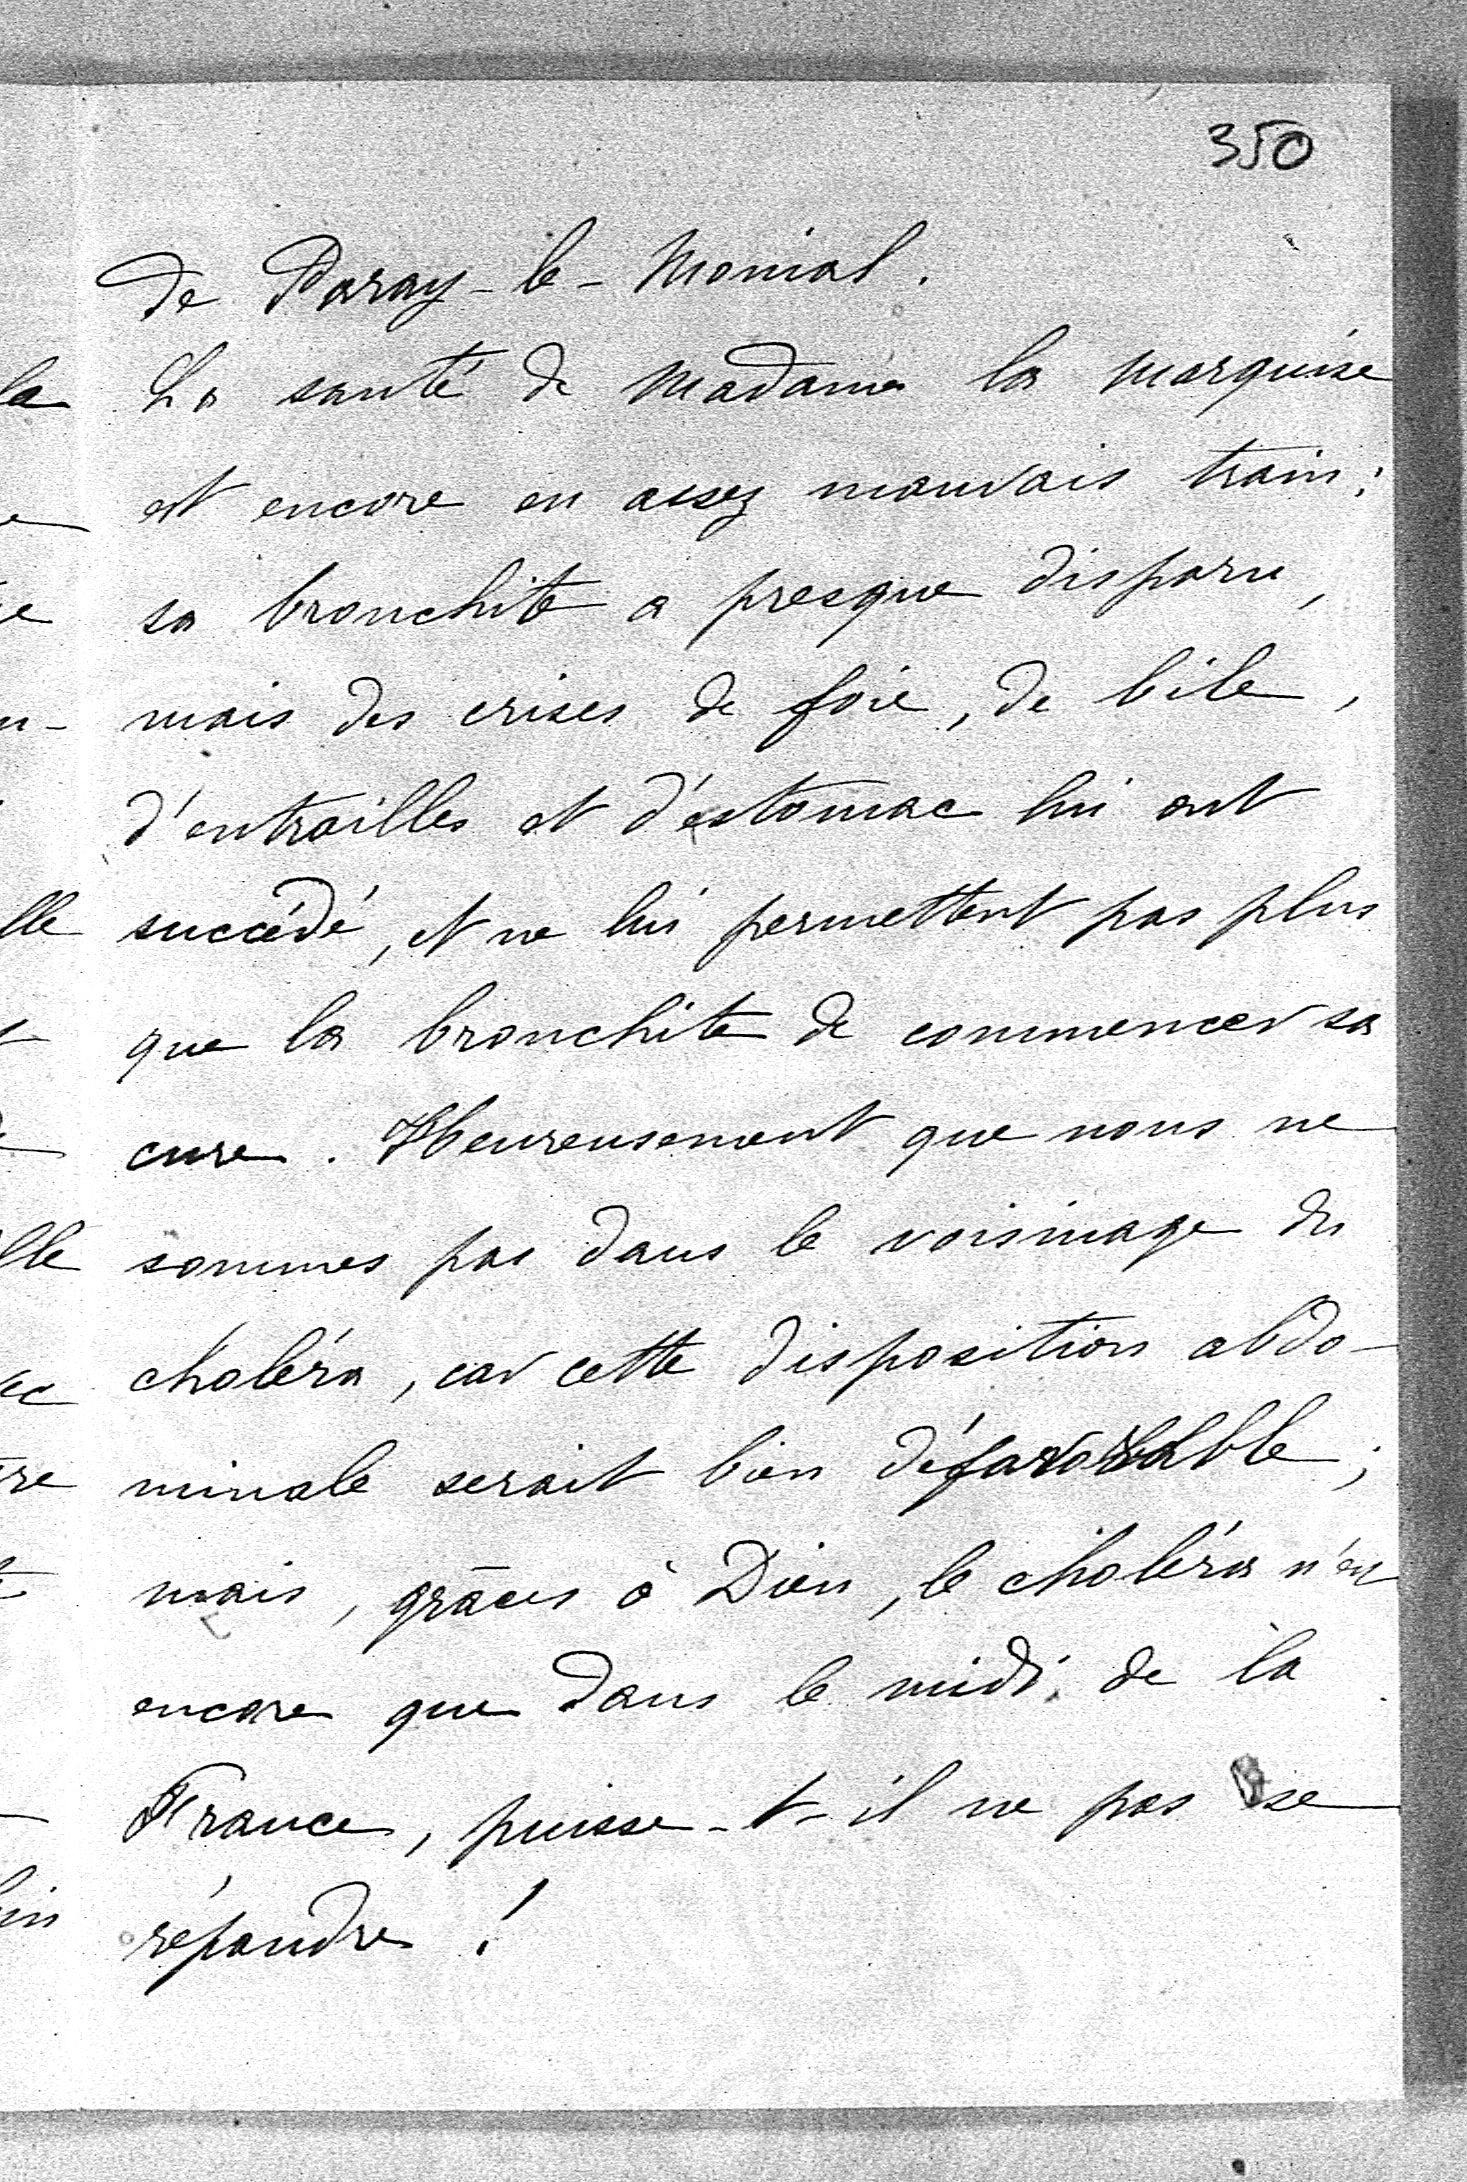 350
de Paray-le-Monial.
La santé de Madame la Marquise
est encore en assez mauvais train:
sa bronchite a presque disparu,
mais des crises de foie, de bile,
d'entrailles et d'estomac lui ont
succédé, et ne lui permettent pas plus
que la bronchite de commencer sa
cure. Heureusement que nous ne
sommes pas dans le voisinage du
choléra, car cette disposition abdo-
minale serait bien défavorable;
mais, grâces à Dieu, le choléra n'est
encore que dans le midi de la
France, puisse-t-il ne pas se
répandre!